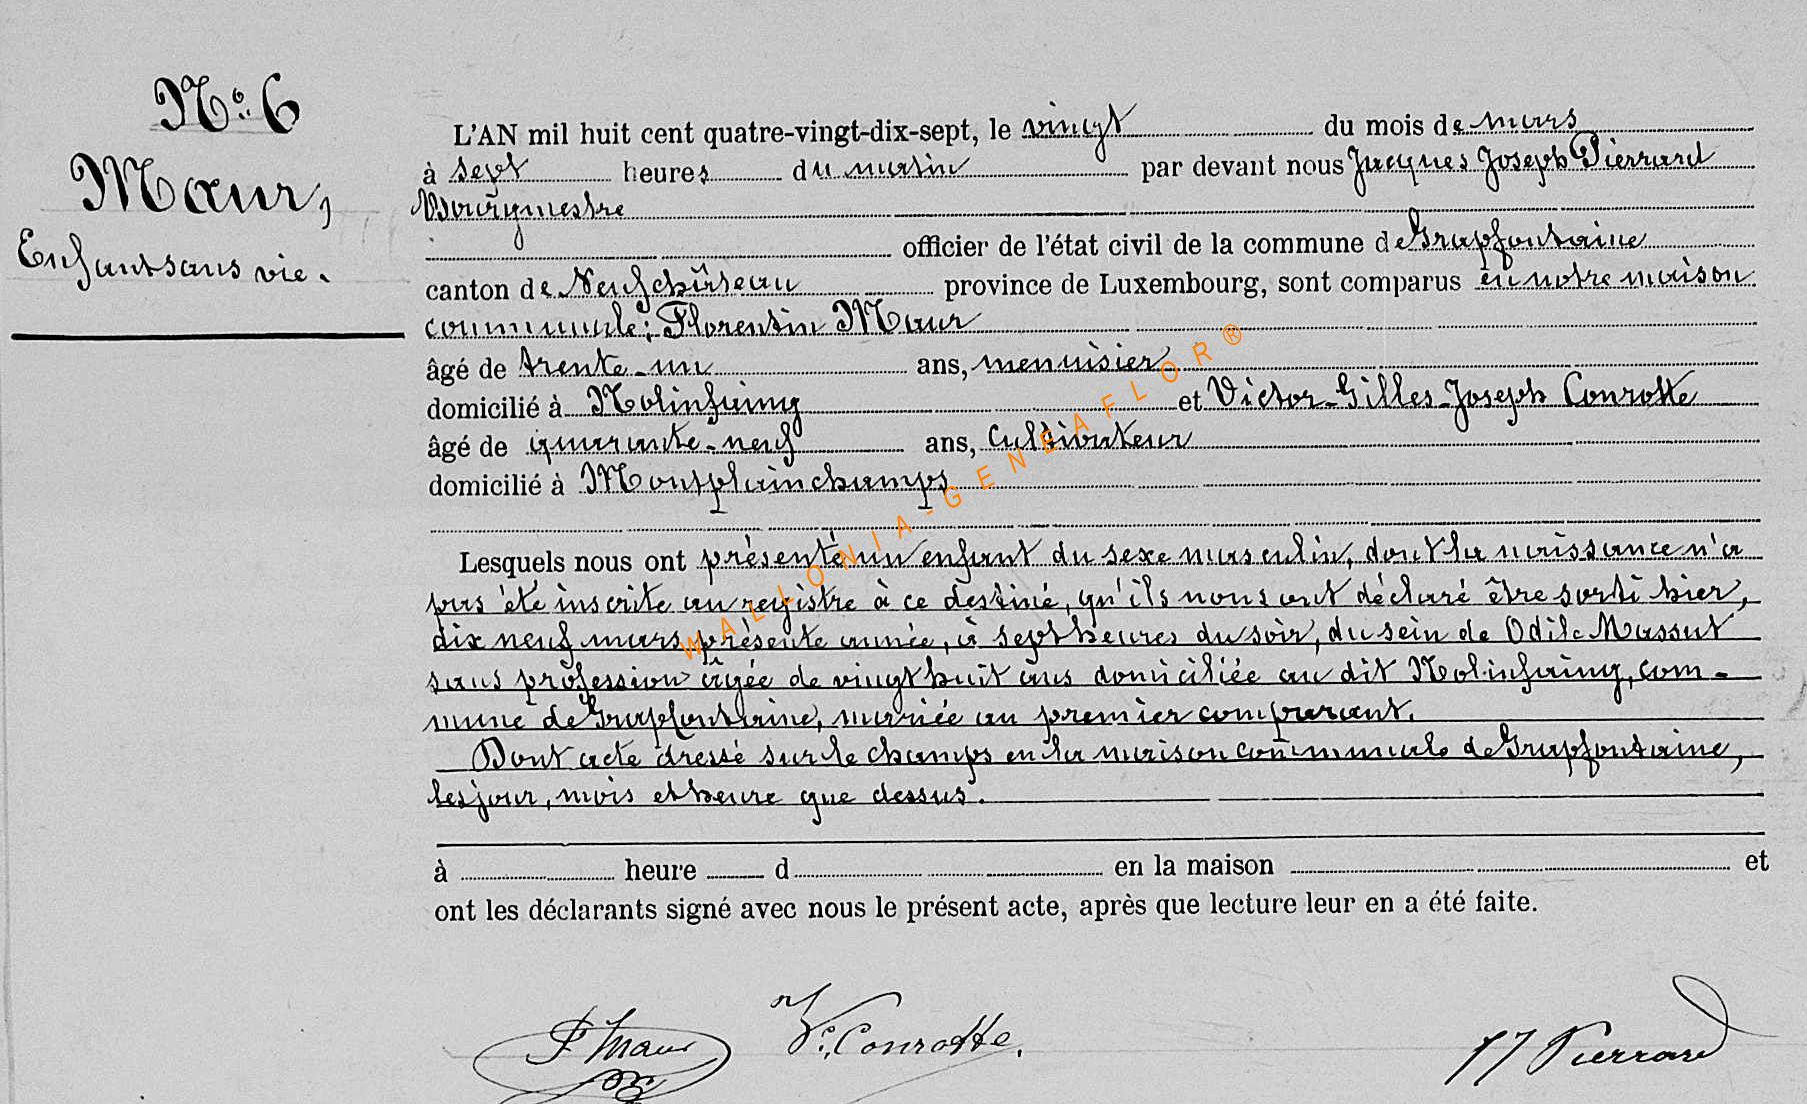 N° 6
Mœur,
Enfant sans vie.
L'AN mil huit cent quatre-vingt-dix-sept, le vingt du mois de mars
à sept heures du matin par devant nous Jacques Joseph Pierrard
Bourgmestre
officier de l'état civil de la commune de Grapfontaine
canton de Neufchâteau province de Luxembourg, sont comparus en notre maison
communale; Florentin Mœur
âgé de trente-un ans, menuisier
domicilié à Molinfaing et Victor-Gilles-Joseph Conrotte
âgé de quarante-neuf ans, Cultivateur
domicilié à Montplainchamps
Lesquels nous ont présenté un enfant du sexe masculin, dont la naissance n'a
pas été inscrite au registre à ce destiné, qu'ils nous ont déclaré être sorti hier,
dix neuf mars présente année, à sept heures du soir, du sein de Odile Massut
sans profession âgée de vingt huit ans domiciliée au dit Molinfaing, com-
mune de Grapfontaine, mariée au premier comparant.
Dont acte dressé sur le champs en la maison communale de Grapfontaine,
les jour, mois et heure que dessus.
à heure d en la maison et
ont les déclarants signé avec nous le présent acte, après que lecture leur en a été faite.
F Mœur Vr Conrotte. JJ Pierrard
WALLONIA-GENEAFLOR®